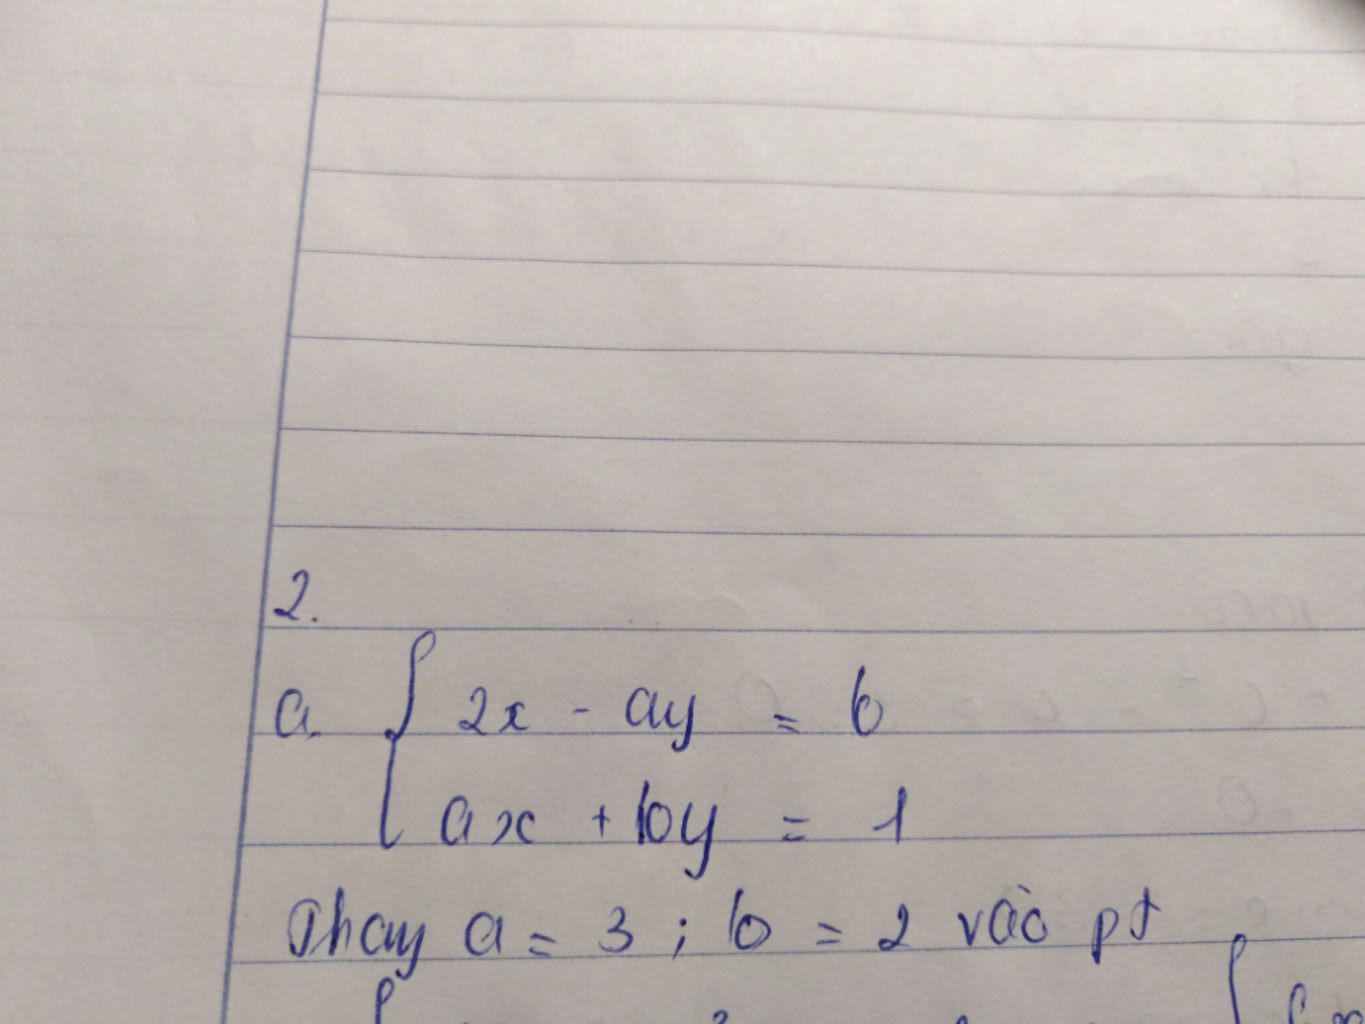 2.
a. { 2x - ay = b
ax + by = 1
Thay a = 3 ; b = 2 vào pt